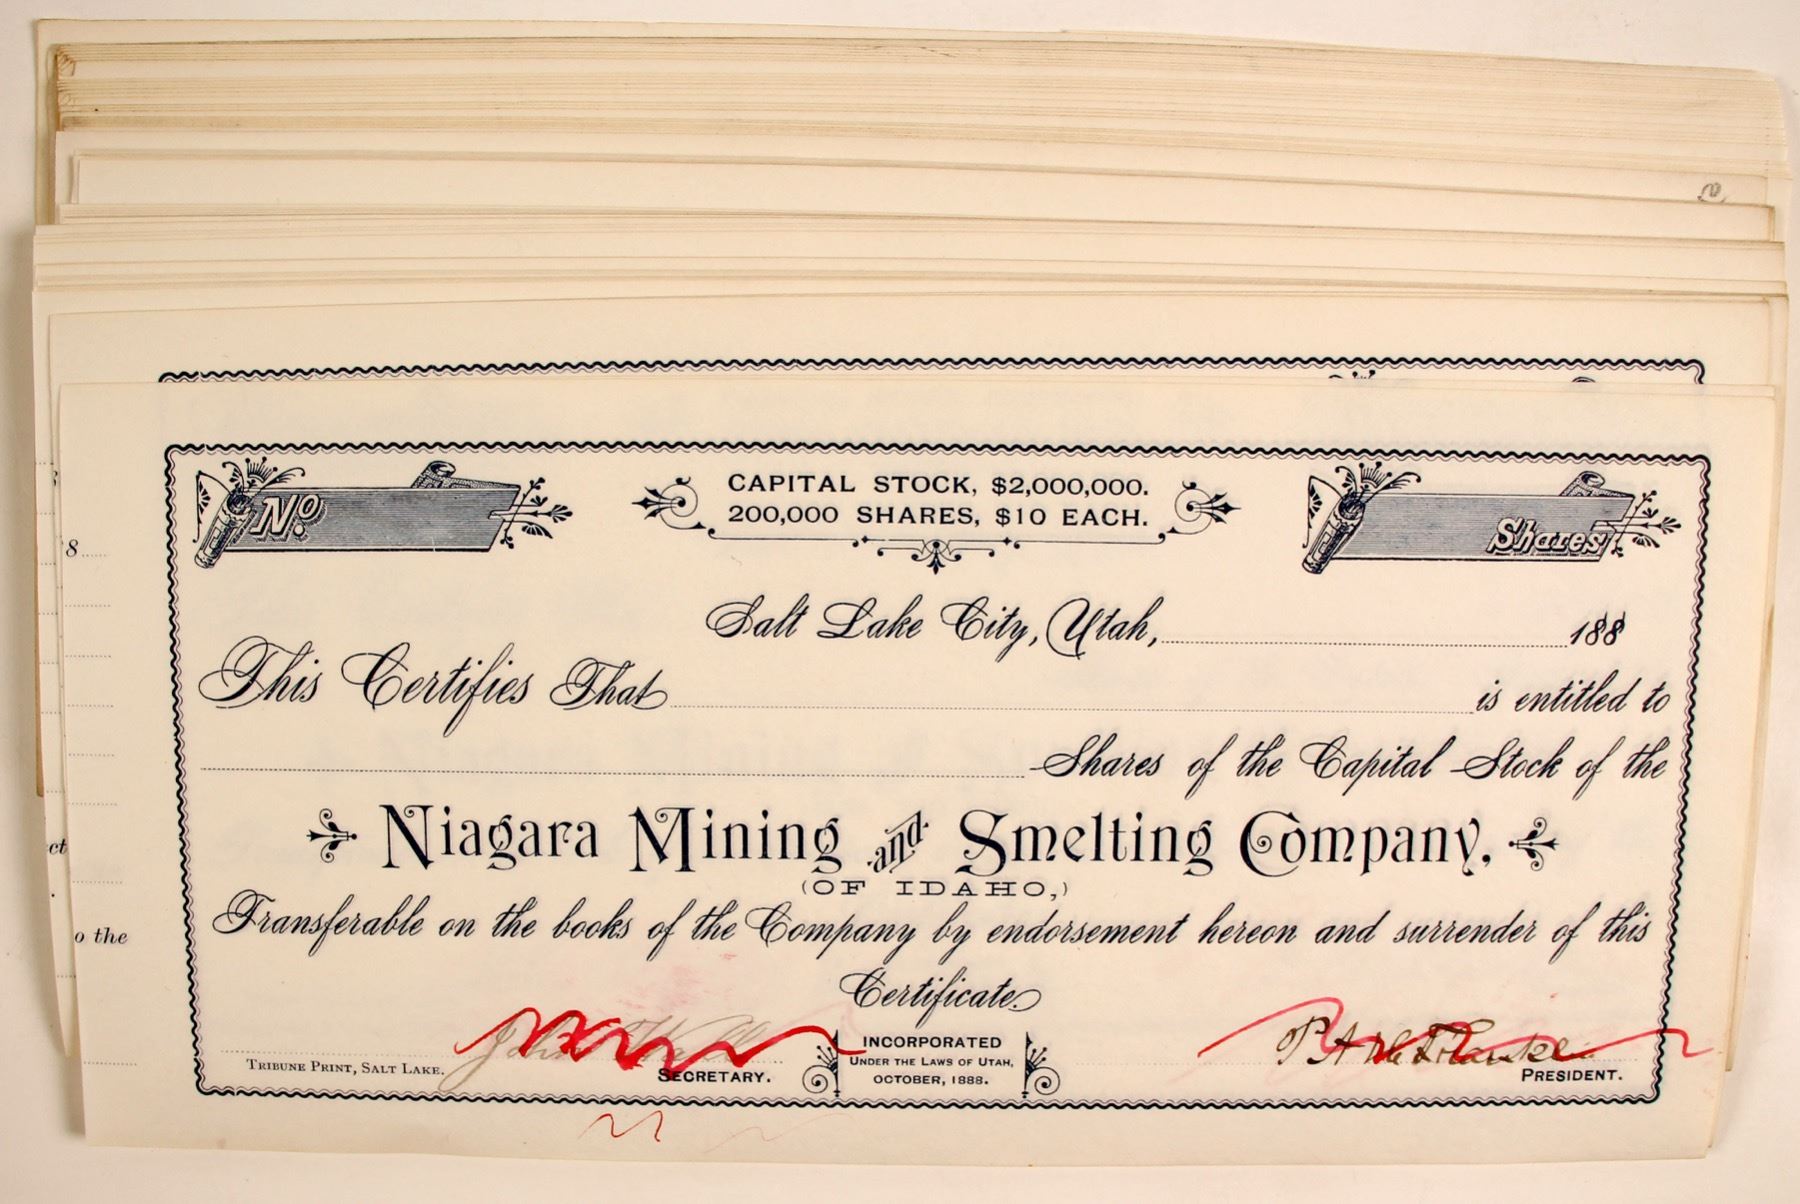 8
ct
o the
No.
CAPITAL STOCK, $2,000,000.
200,000 SHARES, $10 EACH.
Shares
Salt Lake City, Utah, 188
This Certifies That is entitled to
Shares of the Capital Stock of the
Niagara Mining and Smelting Company,
(OF IDAHO,)
Transferable on the books of the Company by endorsement hereon and surrender of this
Certificate.
TRIBUNE PRINT, SALT LAKE.
SECRETARY.
INCORPORATED
UNDER THE LAWS OF UTAH,
OCTOBER, 1888.
P A
PRESIDENT.